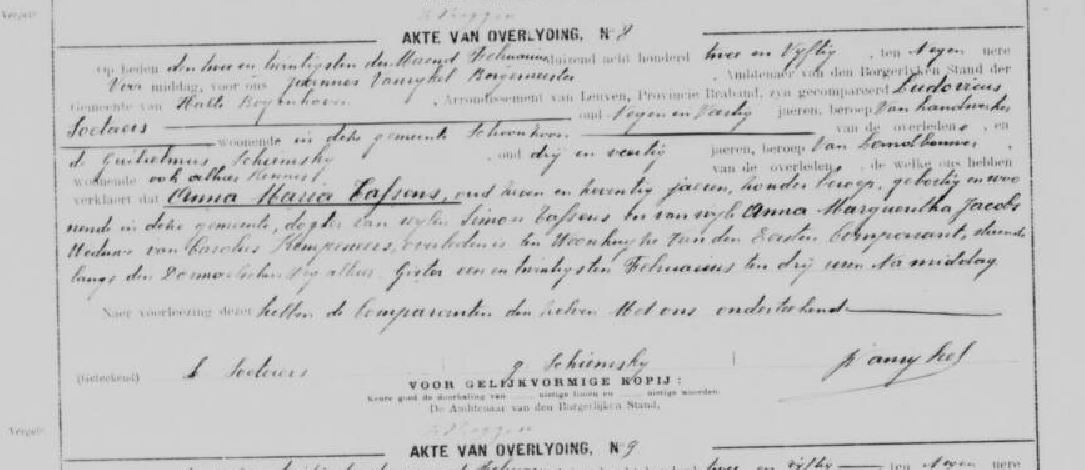 AKTE VAN OVERLYDING, N 8
Op heden den twee en twintigsten der Maend Februarius duizend acht honderd twee en Vyftig, ten Negen uere
Voor middag, voor ons Joannes Vanrykel Borgemeester, Ambtenaer van den Borgerlyken Stand der
Gemeente van Halle Boyenhoven, Arrondissement van Leuven, Provincie Braband, zyn gecompareerd Ludovicus
Soetaers oud Negen en Veertig jaeren, beroep Van handwerker
woonende in deze gemeente van de overledene, en
de Guilielmus Schiemsky, oud drij en veertig jaeren, beroep Van Landbouwer,
woonende ook alhier van de overledene, de welke ons hebben
verklaert dat Anna Maria Tassens, oud zeven en zeventig jaeren, zonder beroep, geboortig en woo
nende in deze gemeente, dogter van wylen Simon Tassens en van wyle Anna Margaretha Jacobs
Weduwe van Carolus Kempeneers, overleden is ten Woonhuyze Van den Eersten Comparant, staende
langs den weg alhier Gister een en twintigsten Februarius ten drij uren Namiddag
Naer voorleezing dezer hebben de Comparanten den zelven Met ons onderteekend
(Geteekend) L Soetaers G Schiemsky J Vanrykel
VOOR GELIJKVORMIGE KOPIJ :
Keure goed de doorhaling van nietige linien en nietige woorden.
De Ambtenaar van den Borgerlijken Stand,
AKTE VAN OVERLYDING, N 9
twee en vyftig ten Negen uere